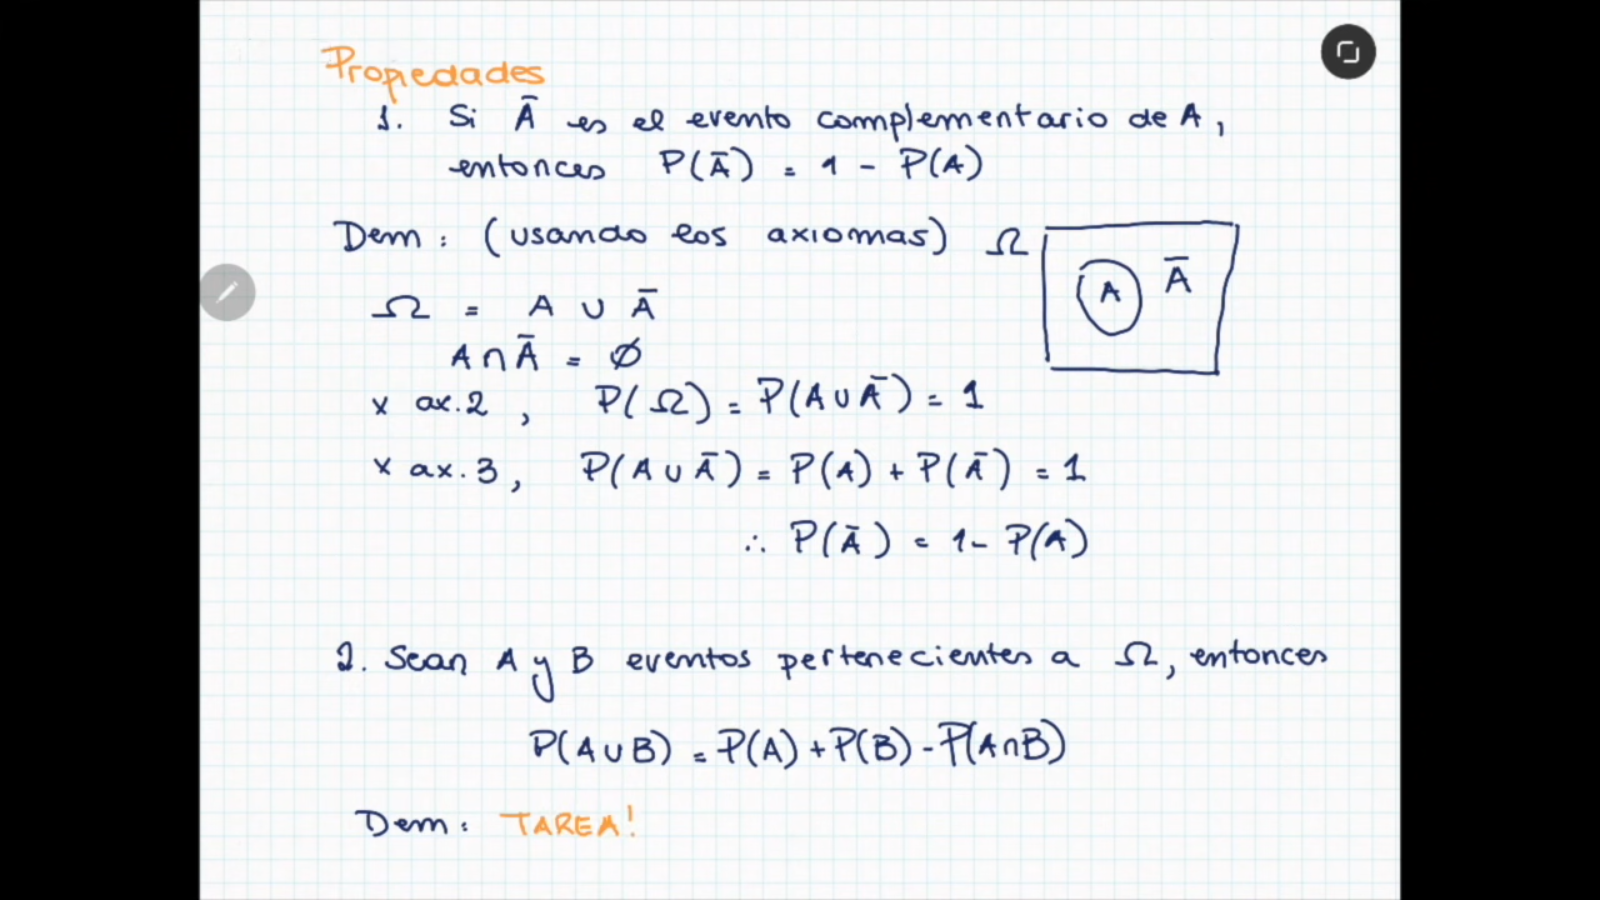 Propiedades
1. Si Ā es el evento complementario de A,
entonces P(Ā) = 1 - P(A)
Dem: (usando los axiomas) Ω
A Ā
Ω = A ∪ Ā
A ∩ Ā = ∅
x ax.2, P(Ω) = P(A ∪ Ā) = 1
x ax.3, P(A ∪ Ā) = P(A) + P(Ā) = 1
∴ P(Ā) = 1 - P(A)
2. Sean A y B eventos pertenecientes a Ω, entonces
P(A ∪ B) = P(A) + P(B) - P(A ∩ B)
Dem: TAREA!